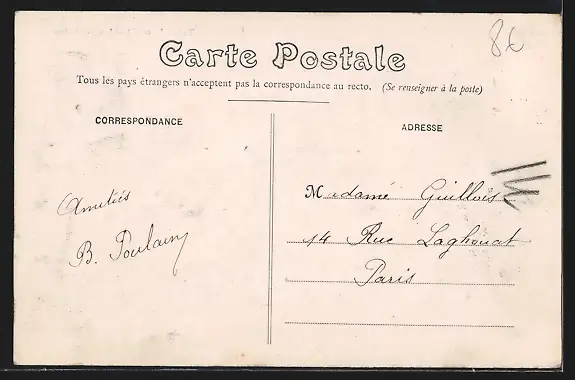 86
Carte Postale
Tous les pays étrangers n'acceptent pas la correspondance au recto. (Se renseigner à la poste)
CORRESPONDANCE
ADRESSE
Amitiés
B. Poulain
Madame Guillois
14 Rue Laghouat
Paris